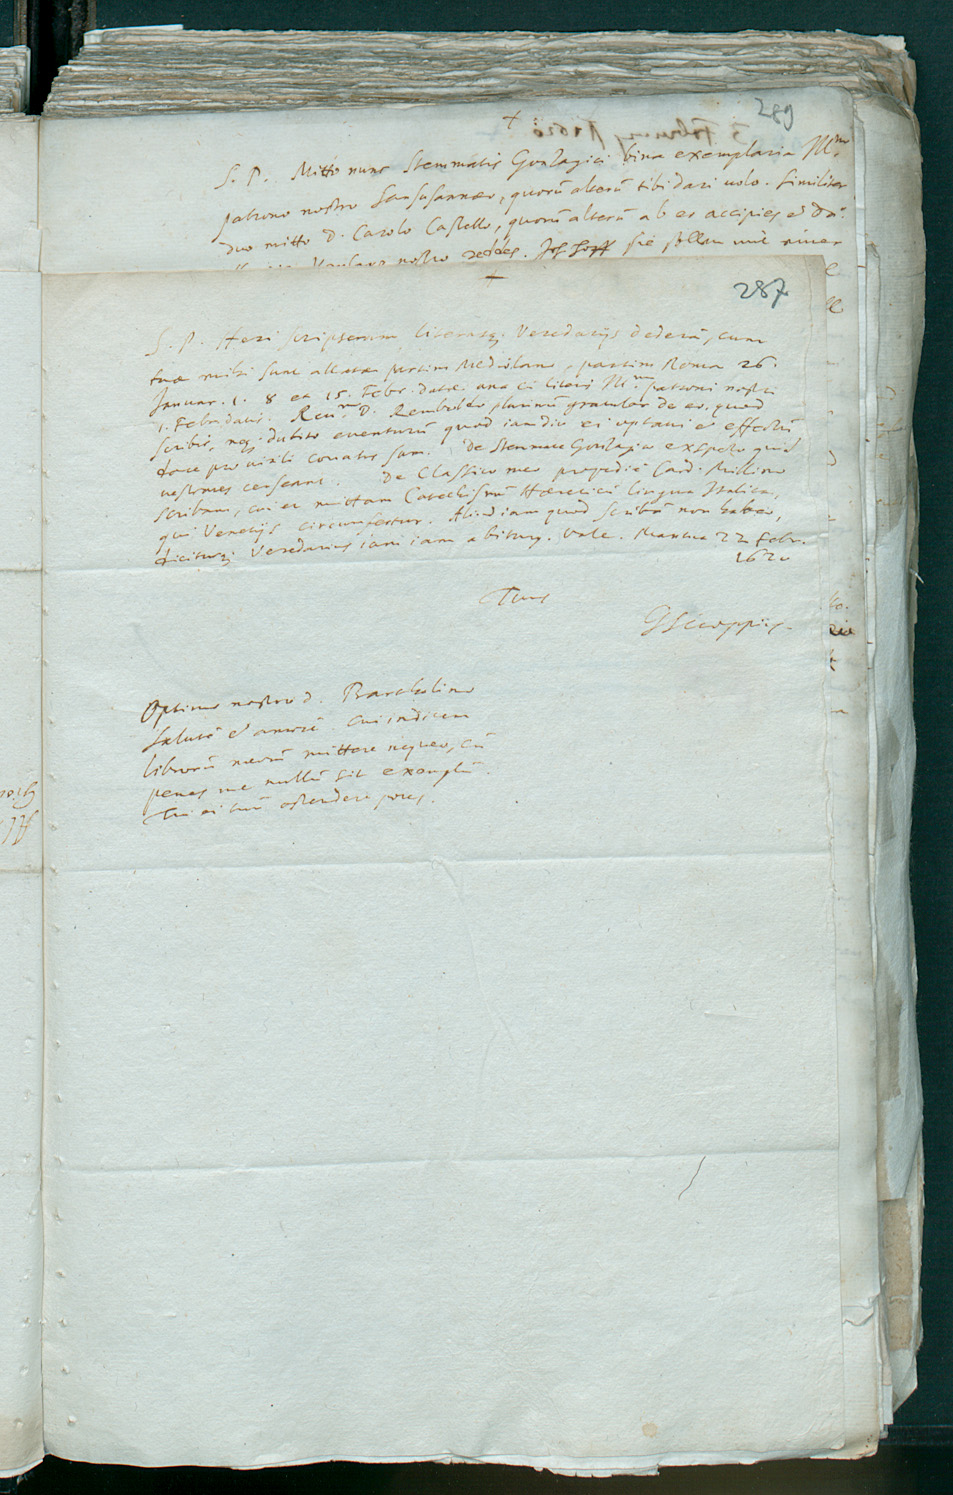 289
+
S. P. Mitto nunc Stemmatis Gonzagici bina exemplaria Ill.mo
patrono nostro Sansusannæo, quorū alterū tibi dari uolo. Similiter
duo mitto D. Carolo Castello, quorū alterū ab eo accipies et
nostro reddes. sie sollen mir einer
+
287
S. P. Heri scripseram literasq; Veredarijs dederā, cum
tuæ mihi sunt allatæ partim Mediolano, partim Roma 26.
Januar. 1. 8 et 15. Febr. datæ una cū literis Ill.mi patroni nostri
1. Febr. datis. Reu.mo D. Remboldo plurimū gratulor de eo, quod
scribis, neq; dubito euenturū quod iamdiu ei optaui et effectū
dare pro uirili conatus sum. De Stemmate Gonzagico exspecto quid
uestrates censeant. De Classico meo propediē Card. Millino
scribam, cui et mittam Catechismū Hæreticū lingua Italica,
qui Venetijs circumfertur. Aliud iam quod scribā non habeo,
diciturq; Veredarius iam iam abiturus. Vale. Mantua 22 Febr.
1620
Tuus
GScioppius
Optimo nostro D. Bartholino
salutē et amorē. cui indicem
librorū meorū mittere nequeo, cū
penes me nullū sit exemplū.
Tu ei tuū ostendere potes.